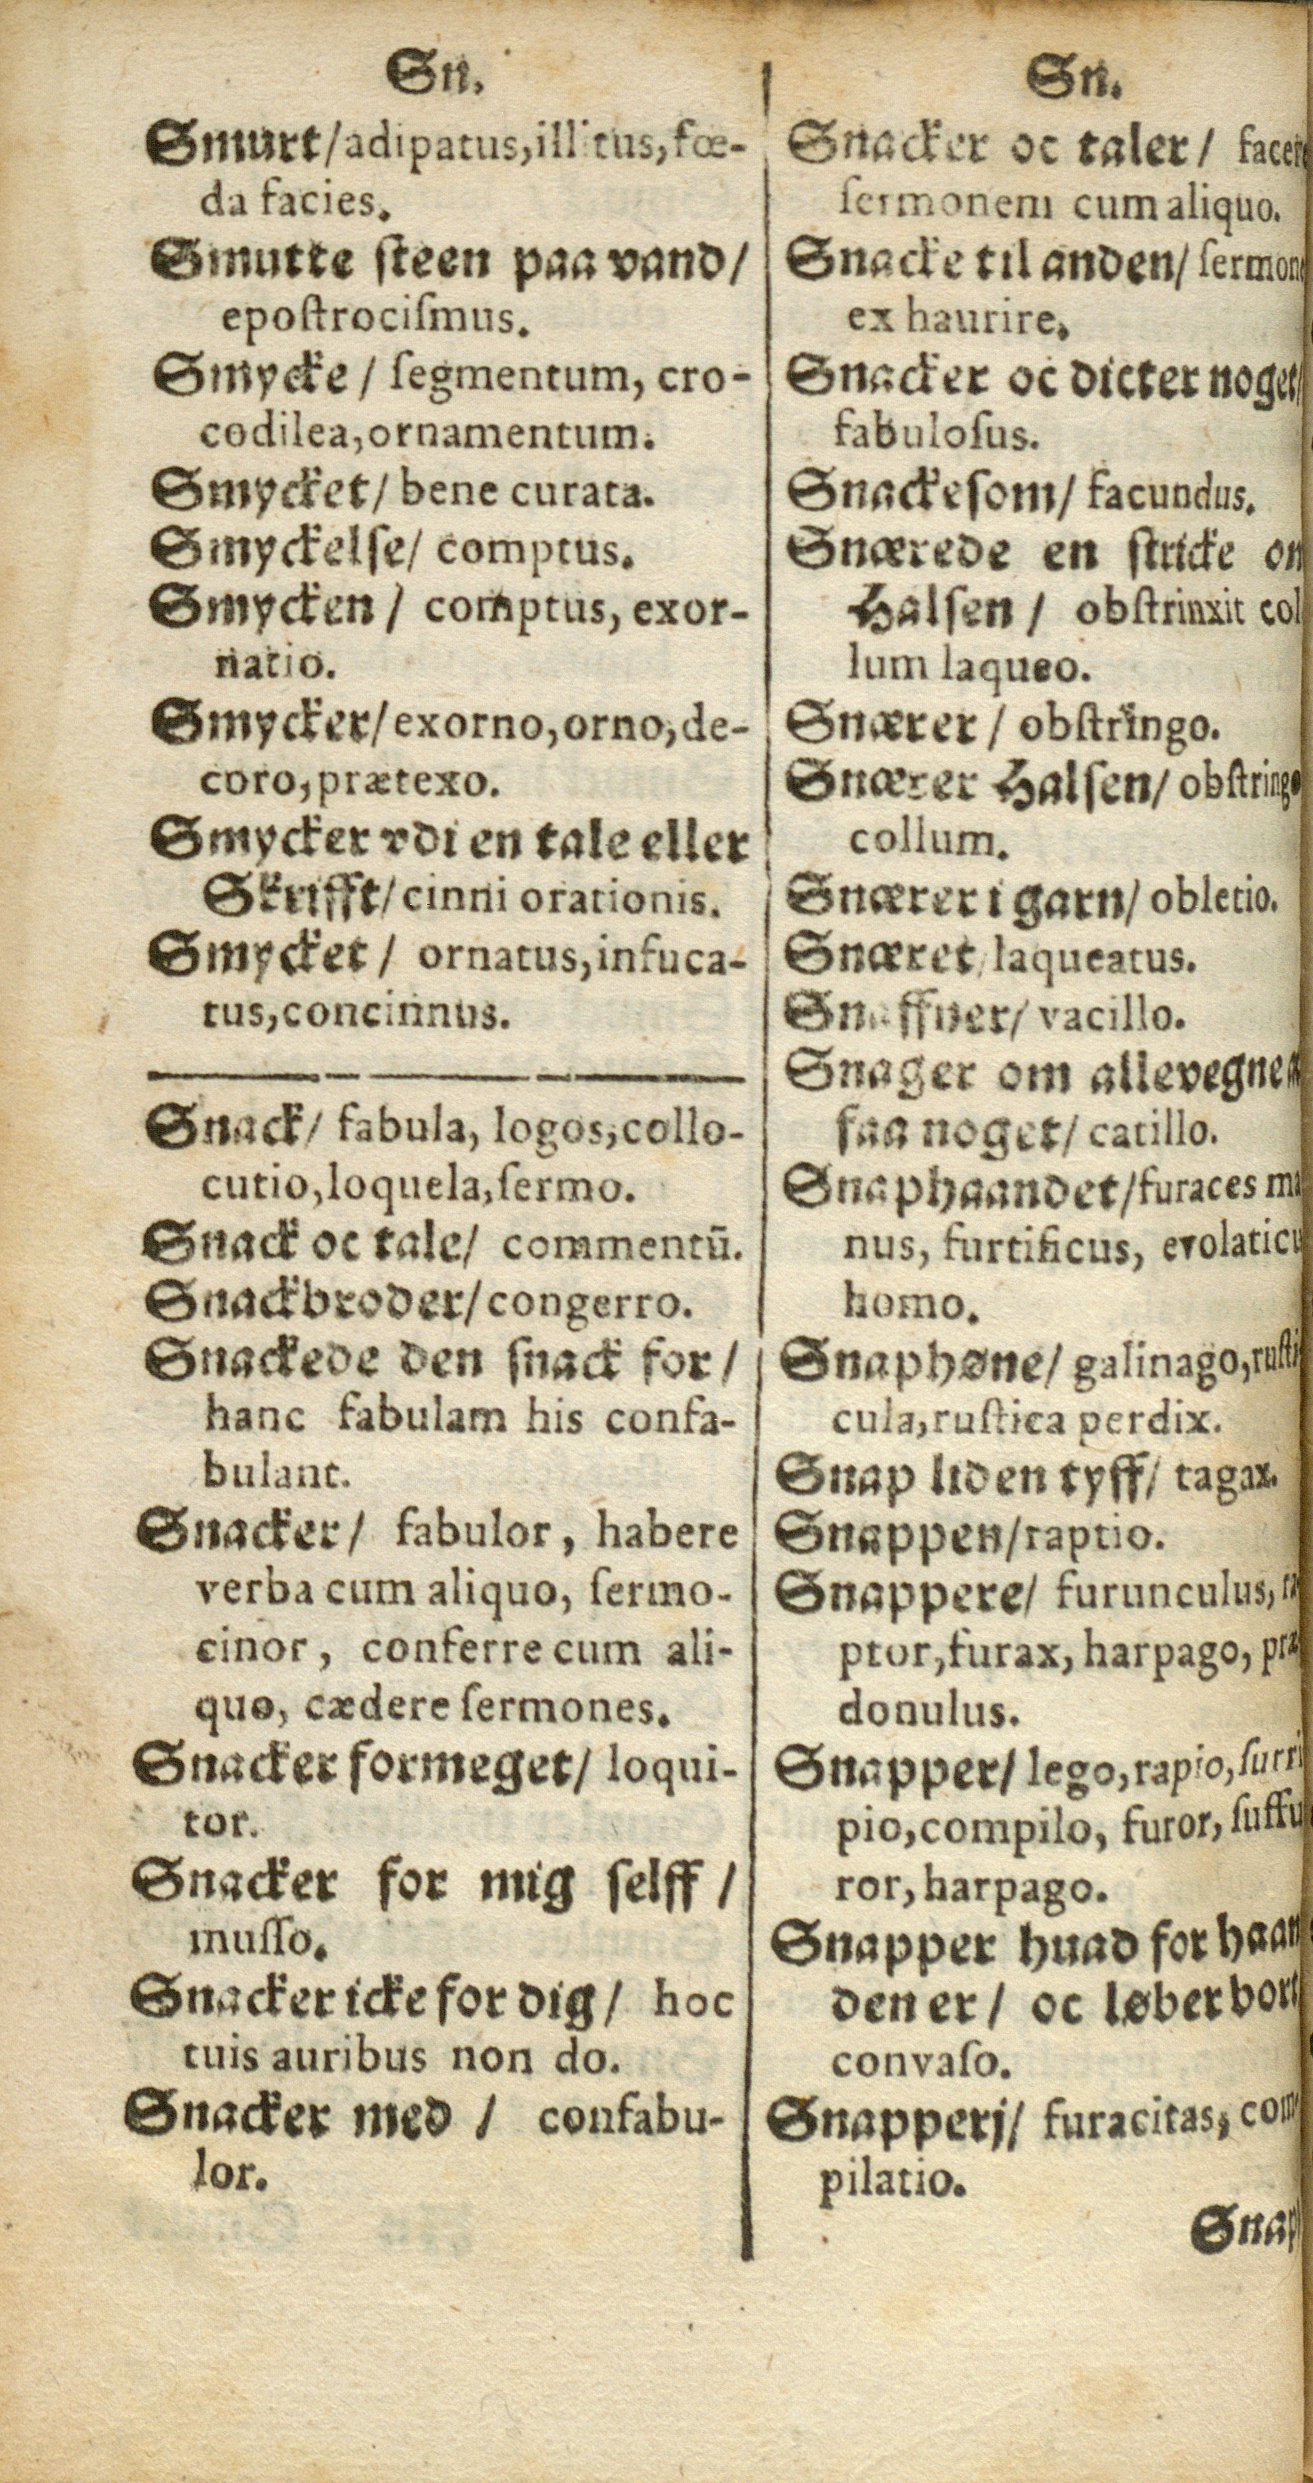 Sn.
Smurt/adipatus,illitus,fœ-
da facies.
Smutte steen paa vand/
epostrociſmus.
Smycke / ſegmentum, cro-
codilea,ornamentum.
Smycket/ bene curata.
Smyckelſe/ comptus.
Smycken / comptus, exor-
natio.
Smycker/exorno,orno,de-
coro,prætexo.
Smycker vdi en tale eller
Skrifft/cinni orationis.
Smycket / ornatus,infuca-
tus,concinnus.
Snack/ fabula, logos,collo-
cutio,loquela,ſermo.
Snack oc tale/ commentū.
Snackbroder/congerro.
Snackede den ſnack for/
hanc fabulam his confa-
bulant.
Snacker/ fabulor, habere
verba cum aliquo, ſermo-
cinor, conferre cum ali-
quo, cædere ſermones.
Snacker formeget/ loqui-
tor.
Snacker for mig ſelff /
muſſo.
Snacker icke for dig/ hoc
tuis auribus non do.
Snacker med / confabu-
lor.
Sn.
Snacker oc taler/ facere
ſermonem cum aliquo.
Snacke til anden/ ſermon
ex haurire.
Snacker oc dicter noget/
fabuloſus.
Snackeſom/ facundus.
Snærede en ſtricke om
Halſen / obſtrinxit col
lum laqueo.
Snærer / obſtringo.
Snærer Halſen/ obſtringo
collum.
Snærer i garn/ obletio.
Snæret/laqueatus.
Snaffner/ vacillo.
Snager om allevegne
faa noget/ catillo.
Snaphaandet/furaces ma
nus, furtificus, evolaticu
homo.
Snaphøne/ galinago,ruſti
cula,ruſtica perdix.
Snap liden tyff/ tagax.
Snappen/raptio.
Snappere/ furunculus, ra
ptor,furax, harpago, præ
donulus.
Snapper/ lego,rapio,ſurri
pio,compilo, furor, ſuffu
ror,harpago.
Snapper huad for haan
den er / oc løber bort
convaſo.
Snapperj/ furacitas, com
pilatio.
Snap